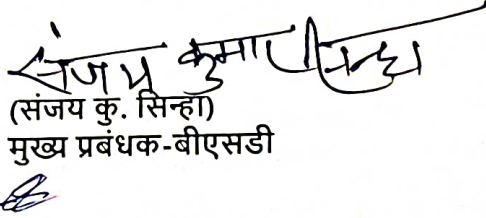 संजय कुमार सिन्हा
(संजय कु. सिन्हा)
मुख्य प्रबंधक-बीएसडी